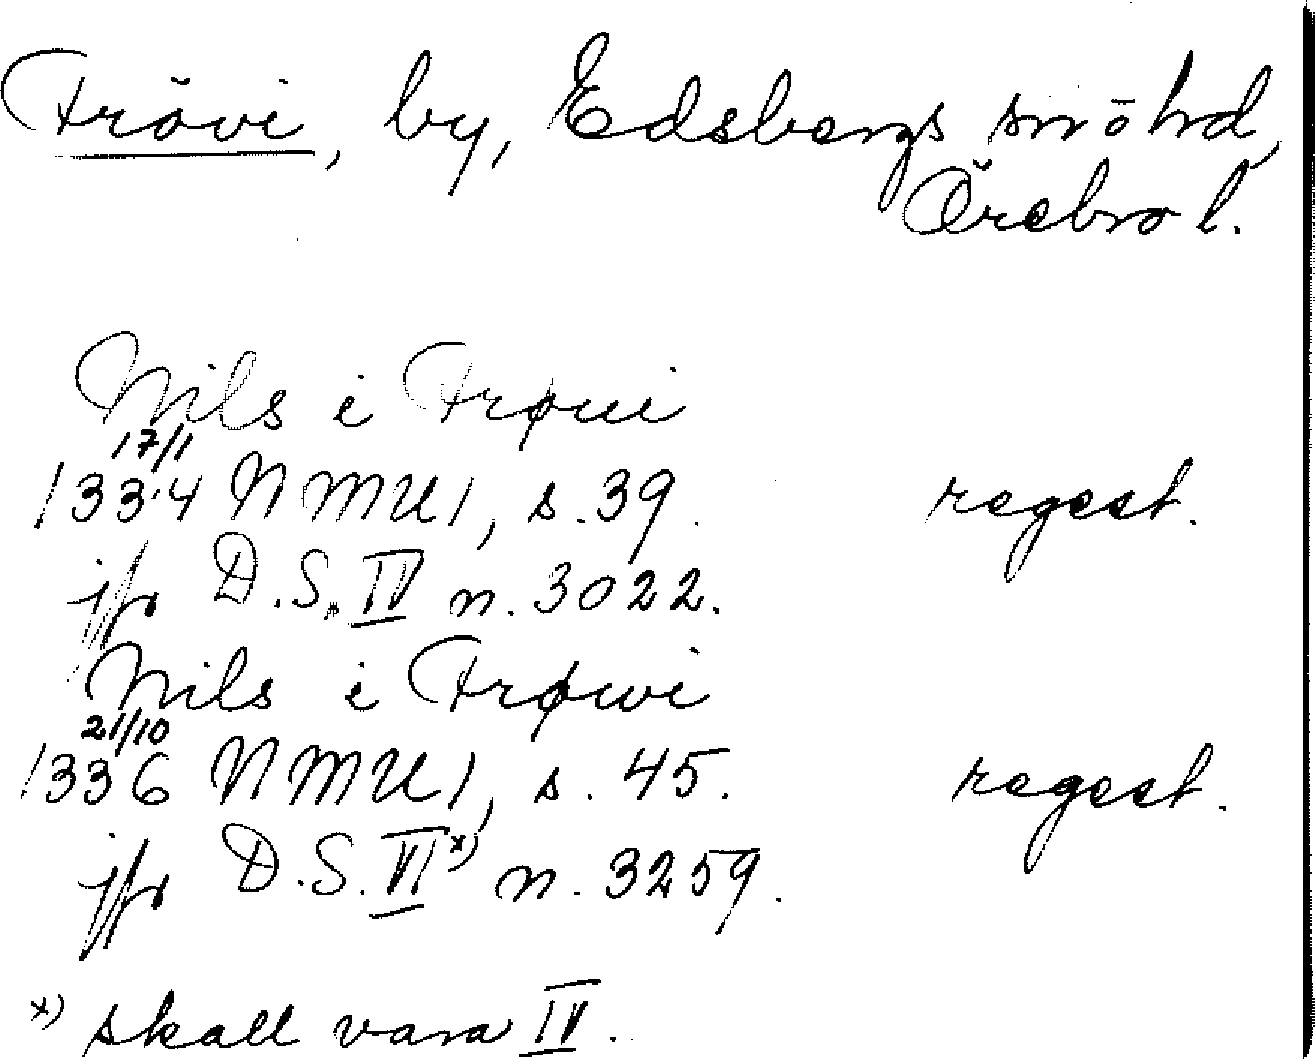 Frövi, by, Edsbergs snöhd,
Örebro l.
Nils i Frøui
17/1
1334 NMU 1, s. 39. regest.
jfr D.S. IV n. 3022.
Nils i Frøwi
21/10
1336 NMU 1, s. 45. regest.
jfr D.S. VI x) n. 3259.
x) skall vara IV.